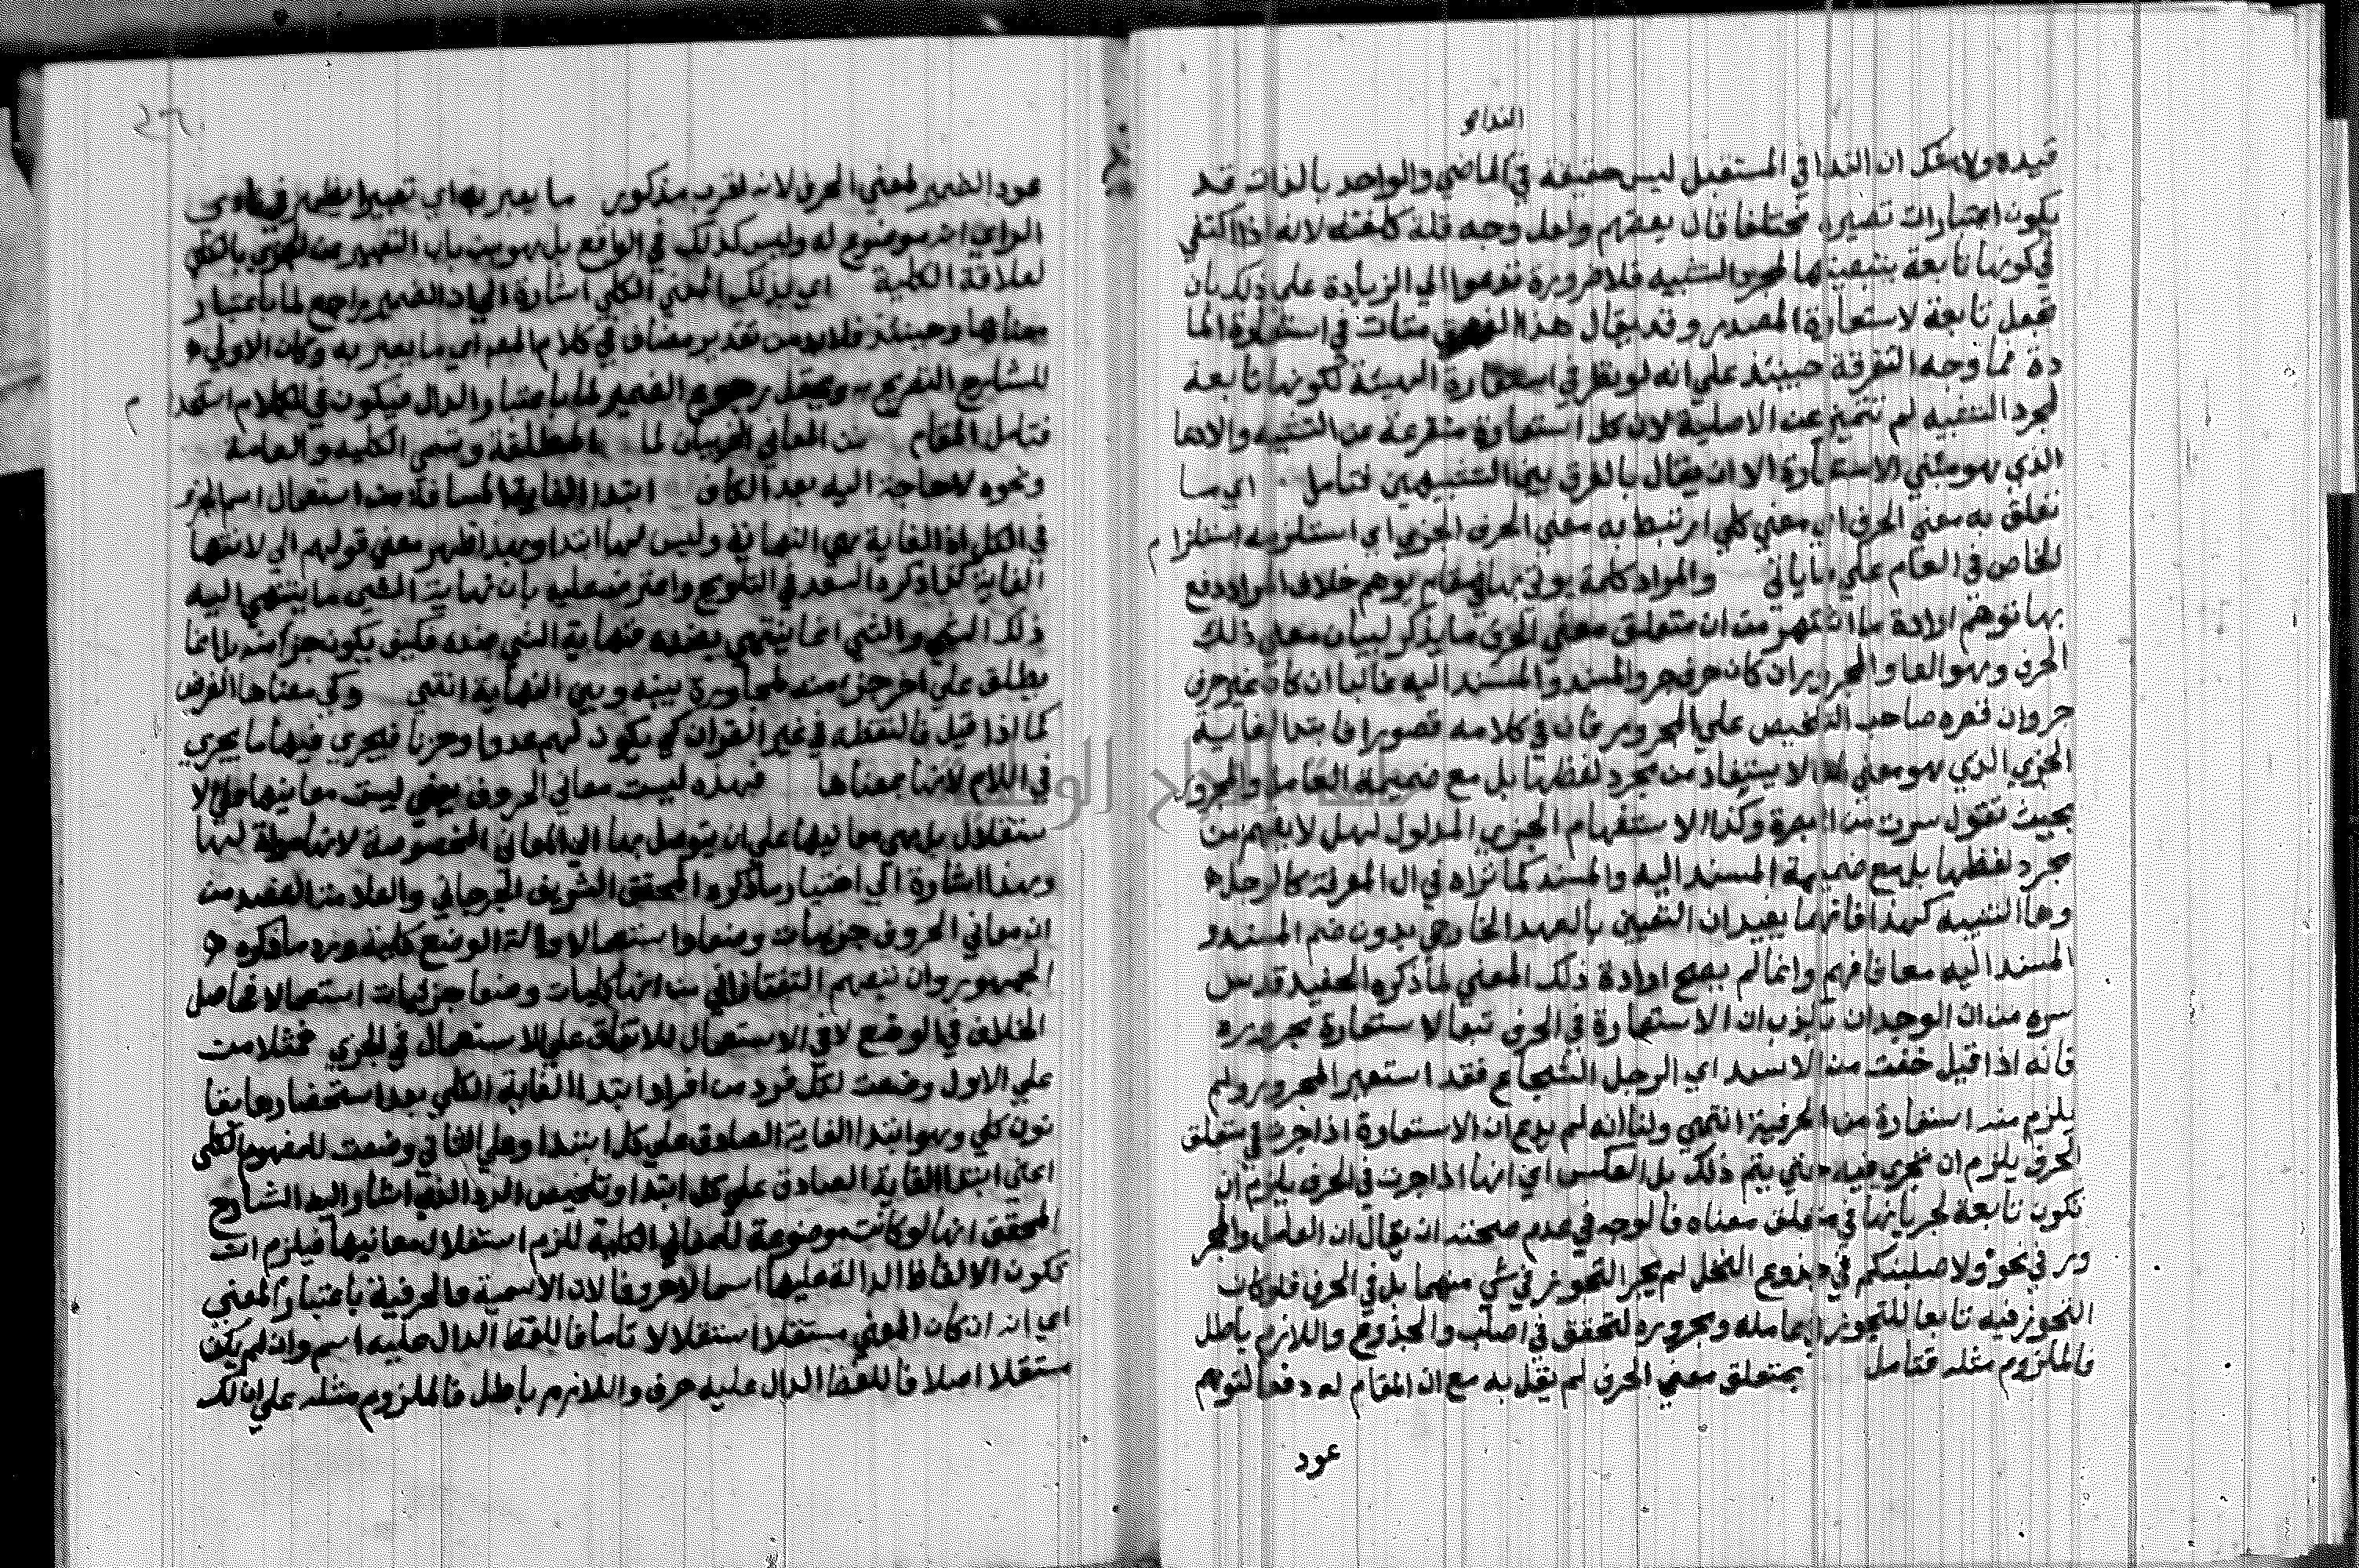 النداء
قيده ولا شك ان الندا في المستقبل ليس حقيقة في الماضي والواحد بالذات قد
يكون اعتبارات تغييره مختلفا قال بعضهم ولعل وجه قلة كلفته لانه اذا اكتفي
في كونها تابعة بتبعيتها لمجرد التشبيه فلا ضرورة تدعوا الي الزيادة علي ذلك بان
تجعل تابعة لاستعارة المصدر وقد يقال هذا متات في استعارة الما
دة فما وجه التفرقة حينئذ علي انه لو نظر في استعارة الهيئة لكونها تابعة
لمجرد التشبيه لم تتميز عن الاصلية لان كل استعارة متفرعة عن التشبيه والادعا
الذي هو مبني الاستعارة الا ان يقال بالفرق بين التشبيهين فتامل اي ما
تعلق به معني الحرف اي معني كلي ارتبط به معني الحرف الجزي اي استلزمه استلزام
الخاص في العام علي ما ياتي والمراد كلمة يوتي بها في مقام يوهم خلاف المراد دفع
بها توهم ارادة ما اشتهر من ان متعلق معني الحرف ما يذكر لبيان معني ذلك
الحرف وهو العا والمجرور ان كان حرف جر والمسند والمسند اليه غالبا ان كان غير حرف
جر وان قصره صاحب التلخيص علي المجرور فان في كلامه قصورا فابتدا الغاية
الجزي الذي هو معني لا يستفاد من مجرد لفظها بل مع ضميمة العامل والمجرور
بحيث تقول سرت من البصرة وكذا الاستفهام الجزي المدلول لهل لا يفهم من
مجرد لفظها بل مع ضميمة المسند اليه والمسند كما تراه في ال المعرفة كالرجل
وها التنبيه كهذا فانهما يفيدان التعيين بالعهد الخارجي بدون ضم المسند و
المسند اليه معا فافهم وانما لم يصح ارادة ذلك المعني لما ذكره الحفيد قدس
سره من ان الوجدان يكذب ان الاستعارة في الحرف تبعا لاستعارة مجروره
فانه اذا قيل خفت من الاسد اي الرجل الشجاع فقد استعير المجرور ولم
يلزم منه استعارة من الحرفية انتهي ولنا انه لم يدع ان الاستعارة اذا جرت في متعلق
الحرف يلزم ان تجري فيه حتي يتم ذلك بل العكس اي انها اذا جرت في الحرف يلزم ان
تكون تابعة لجريانها في متعلق معناه فالوجه في عدم صحته ان يقال ان العامل والمجر
ور في نحو ولاصلبنكم في جذوع النخل لم يجر التجوز في شي منهما بل في الحرف فلو كان
التجوز فيه تابعا للتجوز في عامله ومجروره لتحقق في اصلب والجذوع واللازم باطل
فالملزوم مثله فتامل بمتعلق معني الحرف لم يقل به مع ان المقام له دفعا لتوهم
عود
عود الضمير لمعني الحرف لانه اقرب مذكور ما يعبر به اي تعبيرا يظهر في بادي
الراي انه موضوع له وليس كذلك في الواقع بل هو من باب التعبير عن الجزي بالكلي
لعلاقة الكلية اي بذلك المعني الكلي اشارة الي ان الضمير راجع لما باعتبار
معناها وحينئذ فلا بد من تقدير مضاف في كلام المص اي ما يعبر به وكان الاولي
للشارح التصريح به ويحتمل رجوع الضمير لما باعتبار الدال فيكون في الكلام استخدام
فتامل المقام من المعاني الجزييان لما المطلقة وتسمي الكلية والعامة
ونحوه لا حاجة اليه بعد الكاف ابتدا الغاية المسافة من استعمال اسم الجزء
في الكل اذ الغاية هي النهاية وليس لها ابتدا وبهذا ظهر معني قولهم الي لانتها
الغاية كذا ذكره السعد في التلويح واعترض عليه بان نهاية الشي ما ينتهي اليه
ذلك الشي والشي انما ينتهي بضده فنهاية الشي ضده فكيف يكون جزا منه بل انما
يطلق علي اخر جزء منه لمجاورة بينه وبين النهاية انتهي وكي معناها الغرض
كما اذا قيل فالتقطه في غير القران كي يكون لهم عدوا وحزنا فيجري فيها ما يجري
في اللام لانها بمعناها فهذه ليست معاني الحروف يعني ليست معانيها علي الا
ستقلال بل هي معانيها علي ان يتوصل بها الي المعاني المخصوصة لانها لها
وبهذا اشارة الي اختيار ما ذكره المحقق الشريف الجرجاني والعلامة العضد من
ان معاني الحروف جزييات وضعا واستعمالا والة الوضع كلية ورد ما ذكره
الجمهور وان تبعهم التفتازاني من انها كليات وضعا جزئيات استعمالا فحاصل
الخلاف في الوضع لا في الاستعمال للاتفاق علي الاستعمال في الجزي فمثلا من
علي الاول وضعت لكل فرد من افراد ابتدا الغاية الكلي بعد استحضارها بقا
نون كلي وهو ابتدا الغاية الصادق علي كل ابتدا وعلي الثاني وضعت للمفهوم الكلي
اعني ابتدا الغاية الصادق علي كل ابتدا وتلخيص الرد الذي اشار اليه الشارح
المحقق انها لو كانت موضوعة للمعاني الكلية للزم استقلال معانيها فيلزم ان
تكون الالفاظ الدالة عليها اسما لا حروفا لان الاسمية والحرفية باعتبار المعني
اي انه ان كان المعني مستقلا استقلالا تاما فاللفظ الدال عليه اسم وان لم يكن
مستقلا اصلا فاللفظ الدال عليه حرف واللازم باطل فالملزوم مثله علي ان لك